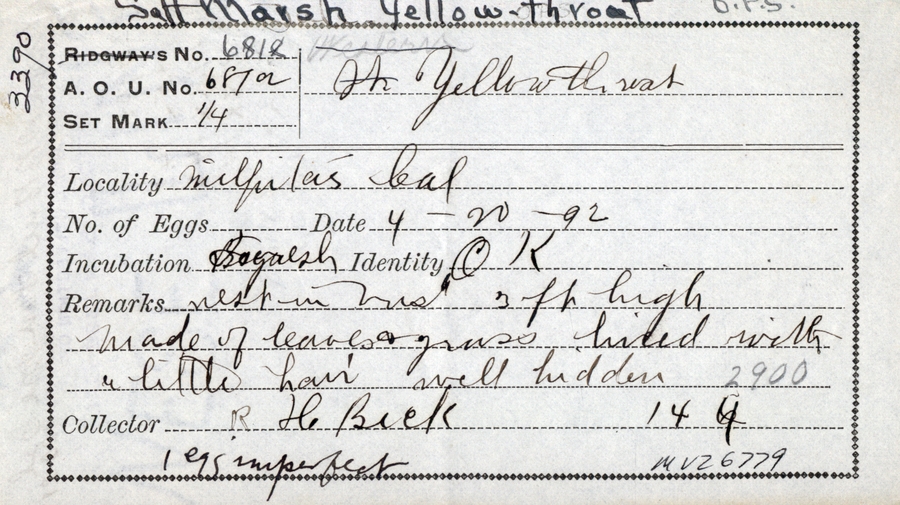 Salt Marsh Yellow-throat
3390
RIDGWAY'S No. 6818
A. O. U. No. 681a
SET MARK 1/4
Yellowthroat
Locality Milpitas Cal
No. of Eggs Date 4 - 20 - 92
Incubation Identity O K
Remarks nest in 3 ft high
made of leaves & grass lined with
a little hair well hidden 2900
Collector R H Beck 14
1 egg imperfect MVZ 6779